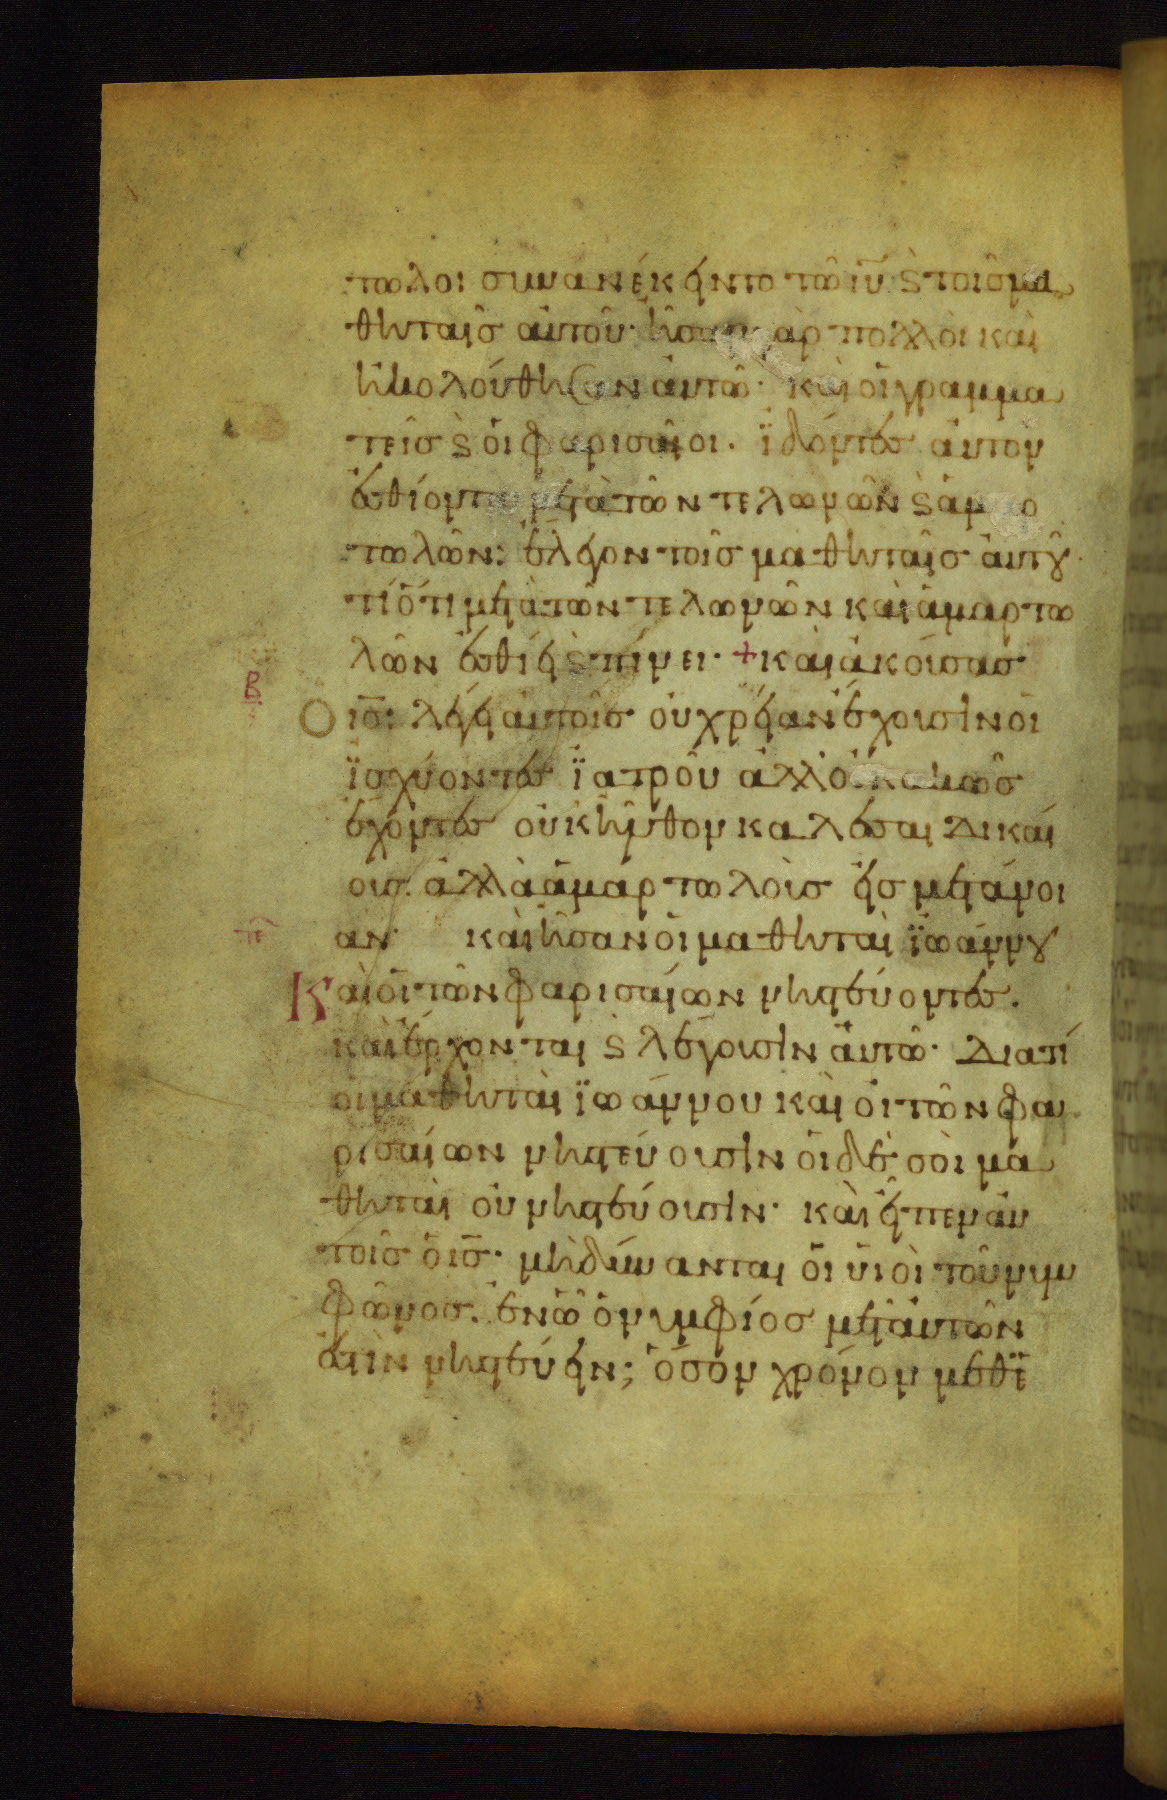 τωλοι συνανέκειντο τῶ ιυ̅ ϛ̀ τοῖσ μα
θηταῖσ αὐτοῦ· ἦσαν γὰρ πολλοὶ καὶ
ἠκολούθησαν ἀυτῶ· καὶ οἱ γραμμα
τεῖσ ϛ̀ ὁι φαρισαῖοι. ϊδόντεσ ἀυτὸν
ἐσθίοντα μετὰ τῶν τελωνῶν ϛ̀ ἁμαρ
τωλῶν: ἔλεγον τοῖσ μαθηταῖσ ἀυτοῦ
τί ὅτι μετὰ τῶν τελωνῶν καὶ ἁμαρτω
λῶν ἐσθίει ϛ̀ πίνει· + καὶ ἀκούσασ
Β
Ο ισ̅: λέγει ἀυτοῖσ οὐ χρείαν ἔχουσιν οἱ
ϊσχύοντεσ ϊατροῦ ἀλλ' οἱ κακῶσ
ἔχοντεσ οὐκ ἦλθον καλέσαι δικαί
ουσ. ἀλλὰ ἁμαρτωλοὺσ εἰσ μετάνοι
αν· καὶ ἦσαν ὁι μαθηταὶ ϊωάννου
Καὶ ὁι τῶν φαρισαίων νηστεύοντεσ.
καὶ ἔρχονται ϛ̀ λέγουσιν ἀυτῶ· Διατί
οἱ μαθηταὶ ϊωάννου καὶ ὁι τῶν φα
ρισαίων νηστεύουσιν ὁι δὲ σοὶ μα
θηταὶ οὐ νηστεύουσιν· καὶ εἶπεν ἀυ
τοῖσ ὁ ισ̅· μὴ δύνανται ὁι ὑιοὶ τοῦ νυμ
φῶνοσ. ἐν ὧ ὁ νυμφίοσ μετ' ἀυτῶν
ἐστὶν νηστεύειν; ὅσον χρόνον μεθ' ἑ